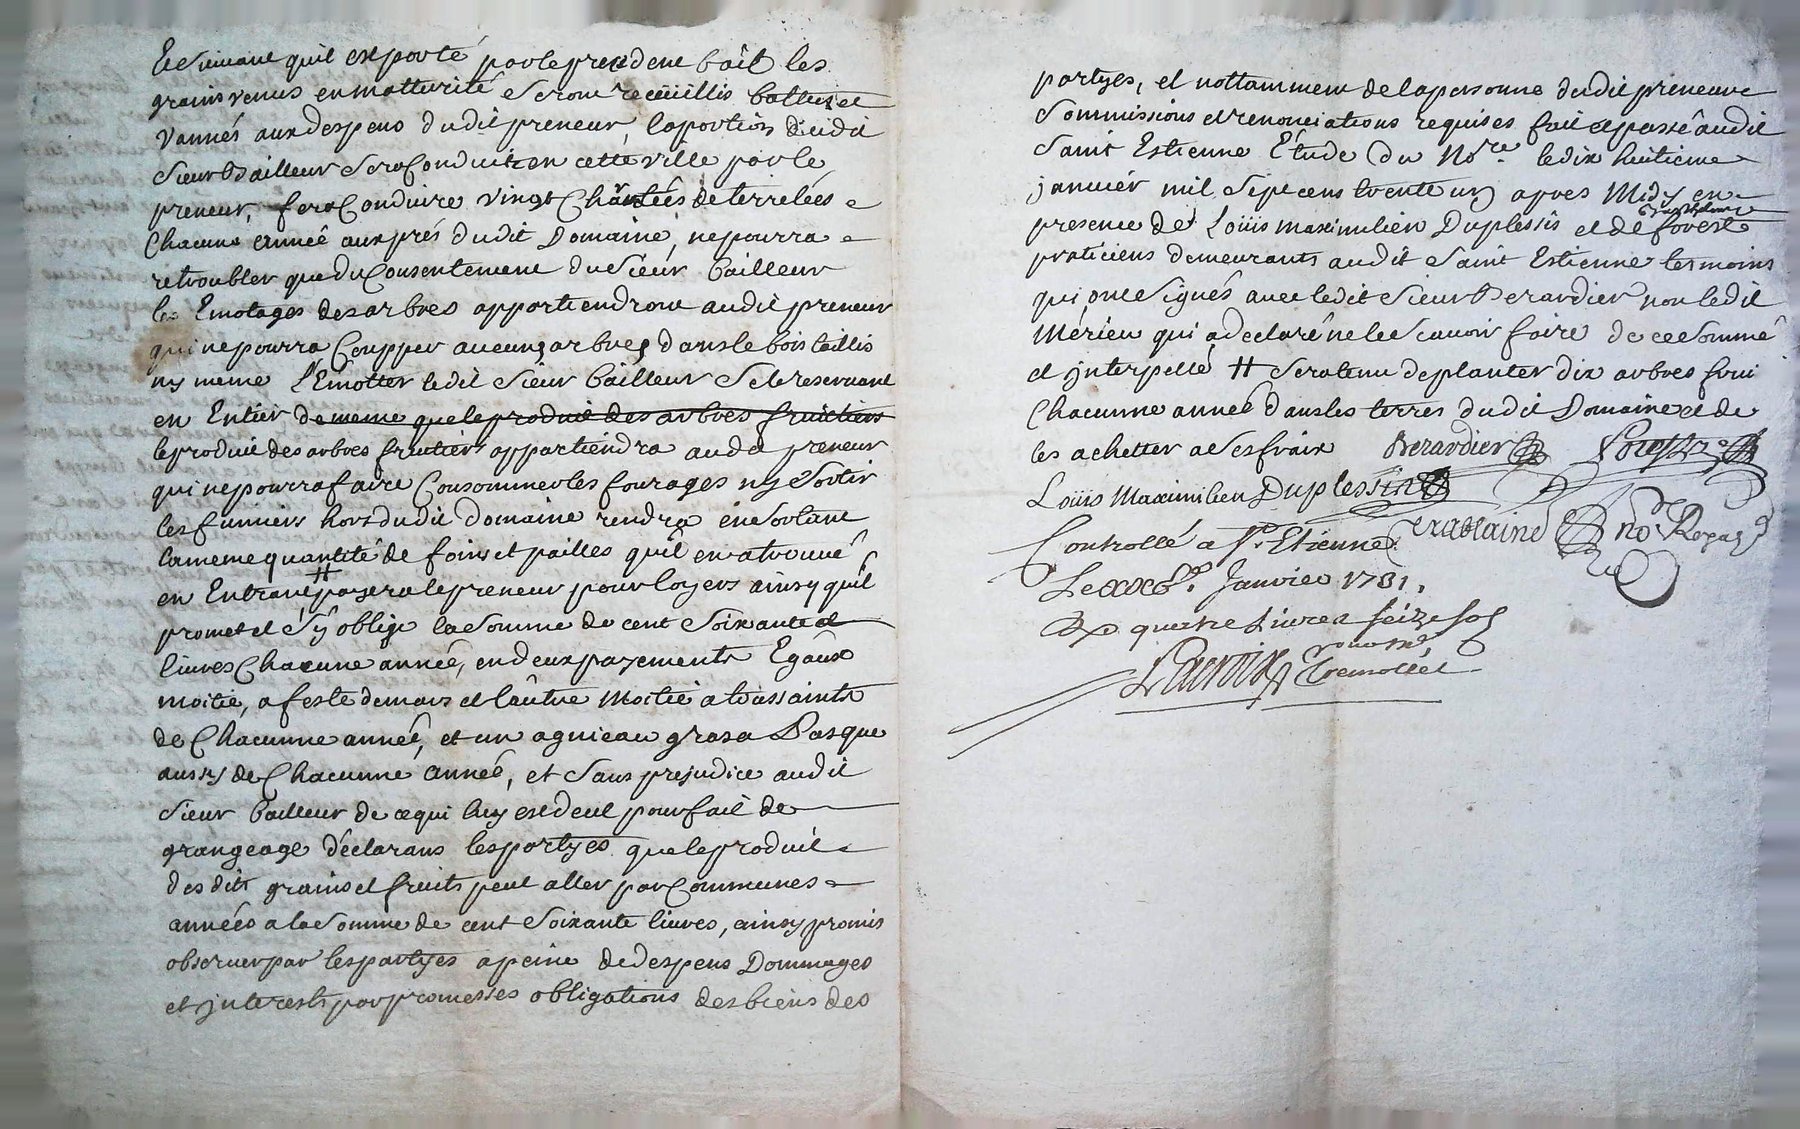 Et Suivant quil est porté par le present bâil les
grains venus en matturité Seront recüeillis battus et
vannés aux despens dudit preneur, la portion dudit
Sieur Bailleur Sera Conduitte en cette ville par le
preneur, fera Conduire vingt Charrtées de terre lées
Chacune année aux prés dudit Domaine, ne pourra
retroubler que du Consentement du Sieur bailleur
les Emotages des arbres appartiendront audit preneur
qui ne pourra Coupper aucuns arbres dans le bois taillis
ny meme l'Emotter ledit Sieur bailleur Se le reservant
en Entier de meme que le produit des arbres fruitiers
le produit des arbres fruitiers appartiendra aud preneur
qui ne pourra faire Consommer les fourages ny Sortir
les fumiers hors dudit Domaine rendra en Sortant
la meme quantité de foins et pailles qu'il en a trouvé
en Entrant # payera le preneur pour loyers ainsy qu'il
promet et S'y oblige la Somme de cent Soixante
livres Chacune année, en deux payements Egaux
moitié, a feste de mars et lâutre Moitié a toussaints
de Chacunne année, et un agnieau gras a Pasque
aussy de Chacunne année, et Sans prejudice audit
Sieur bailleur de ce qui luy est deut pour fait de
grangeage déclarans les partyes que le produit
des dits grains et fruits peut aller par Communes
années a la Somme de cent Soixante livres, ainsy promis
observer par les partyes a peine de despens Dommages
et jnterests par promesses obligations des biens des
partyes, et nottamment de la personne dudit preneur
Sommissions et renonciations requises fait et passé audit
Saint Estienne Étude du No.re le dix huitieme
janvier mil Sept cens trente un apres Midy en
presence de Loüis maximilien Duplessis et de forest
praticiens demeurants audit Saint Estienne tesmoins
qui ont Signés avec ledit Sieur Berardier non ledit
Mérieu qui a declaré ne le Scavoir faire de ce Sommé
et jnterpellé # Sera tenu de planter dix arbres frui
Chacunne année dans les terres dudit Domaine et de
les achetter a Ses fraix Berardier Forest
Loüis Maximilien Duplessis
Controllé a St. Etienne
Le Janvier 1731.
quatre Livres Seize Sols